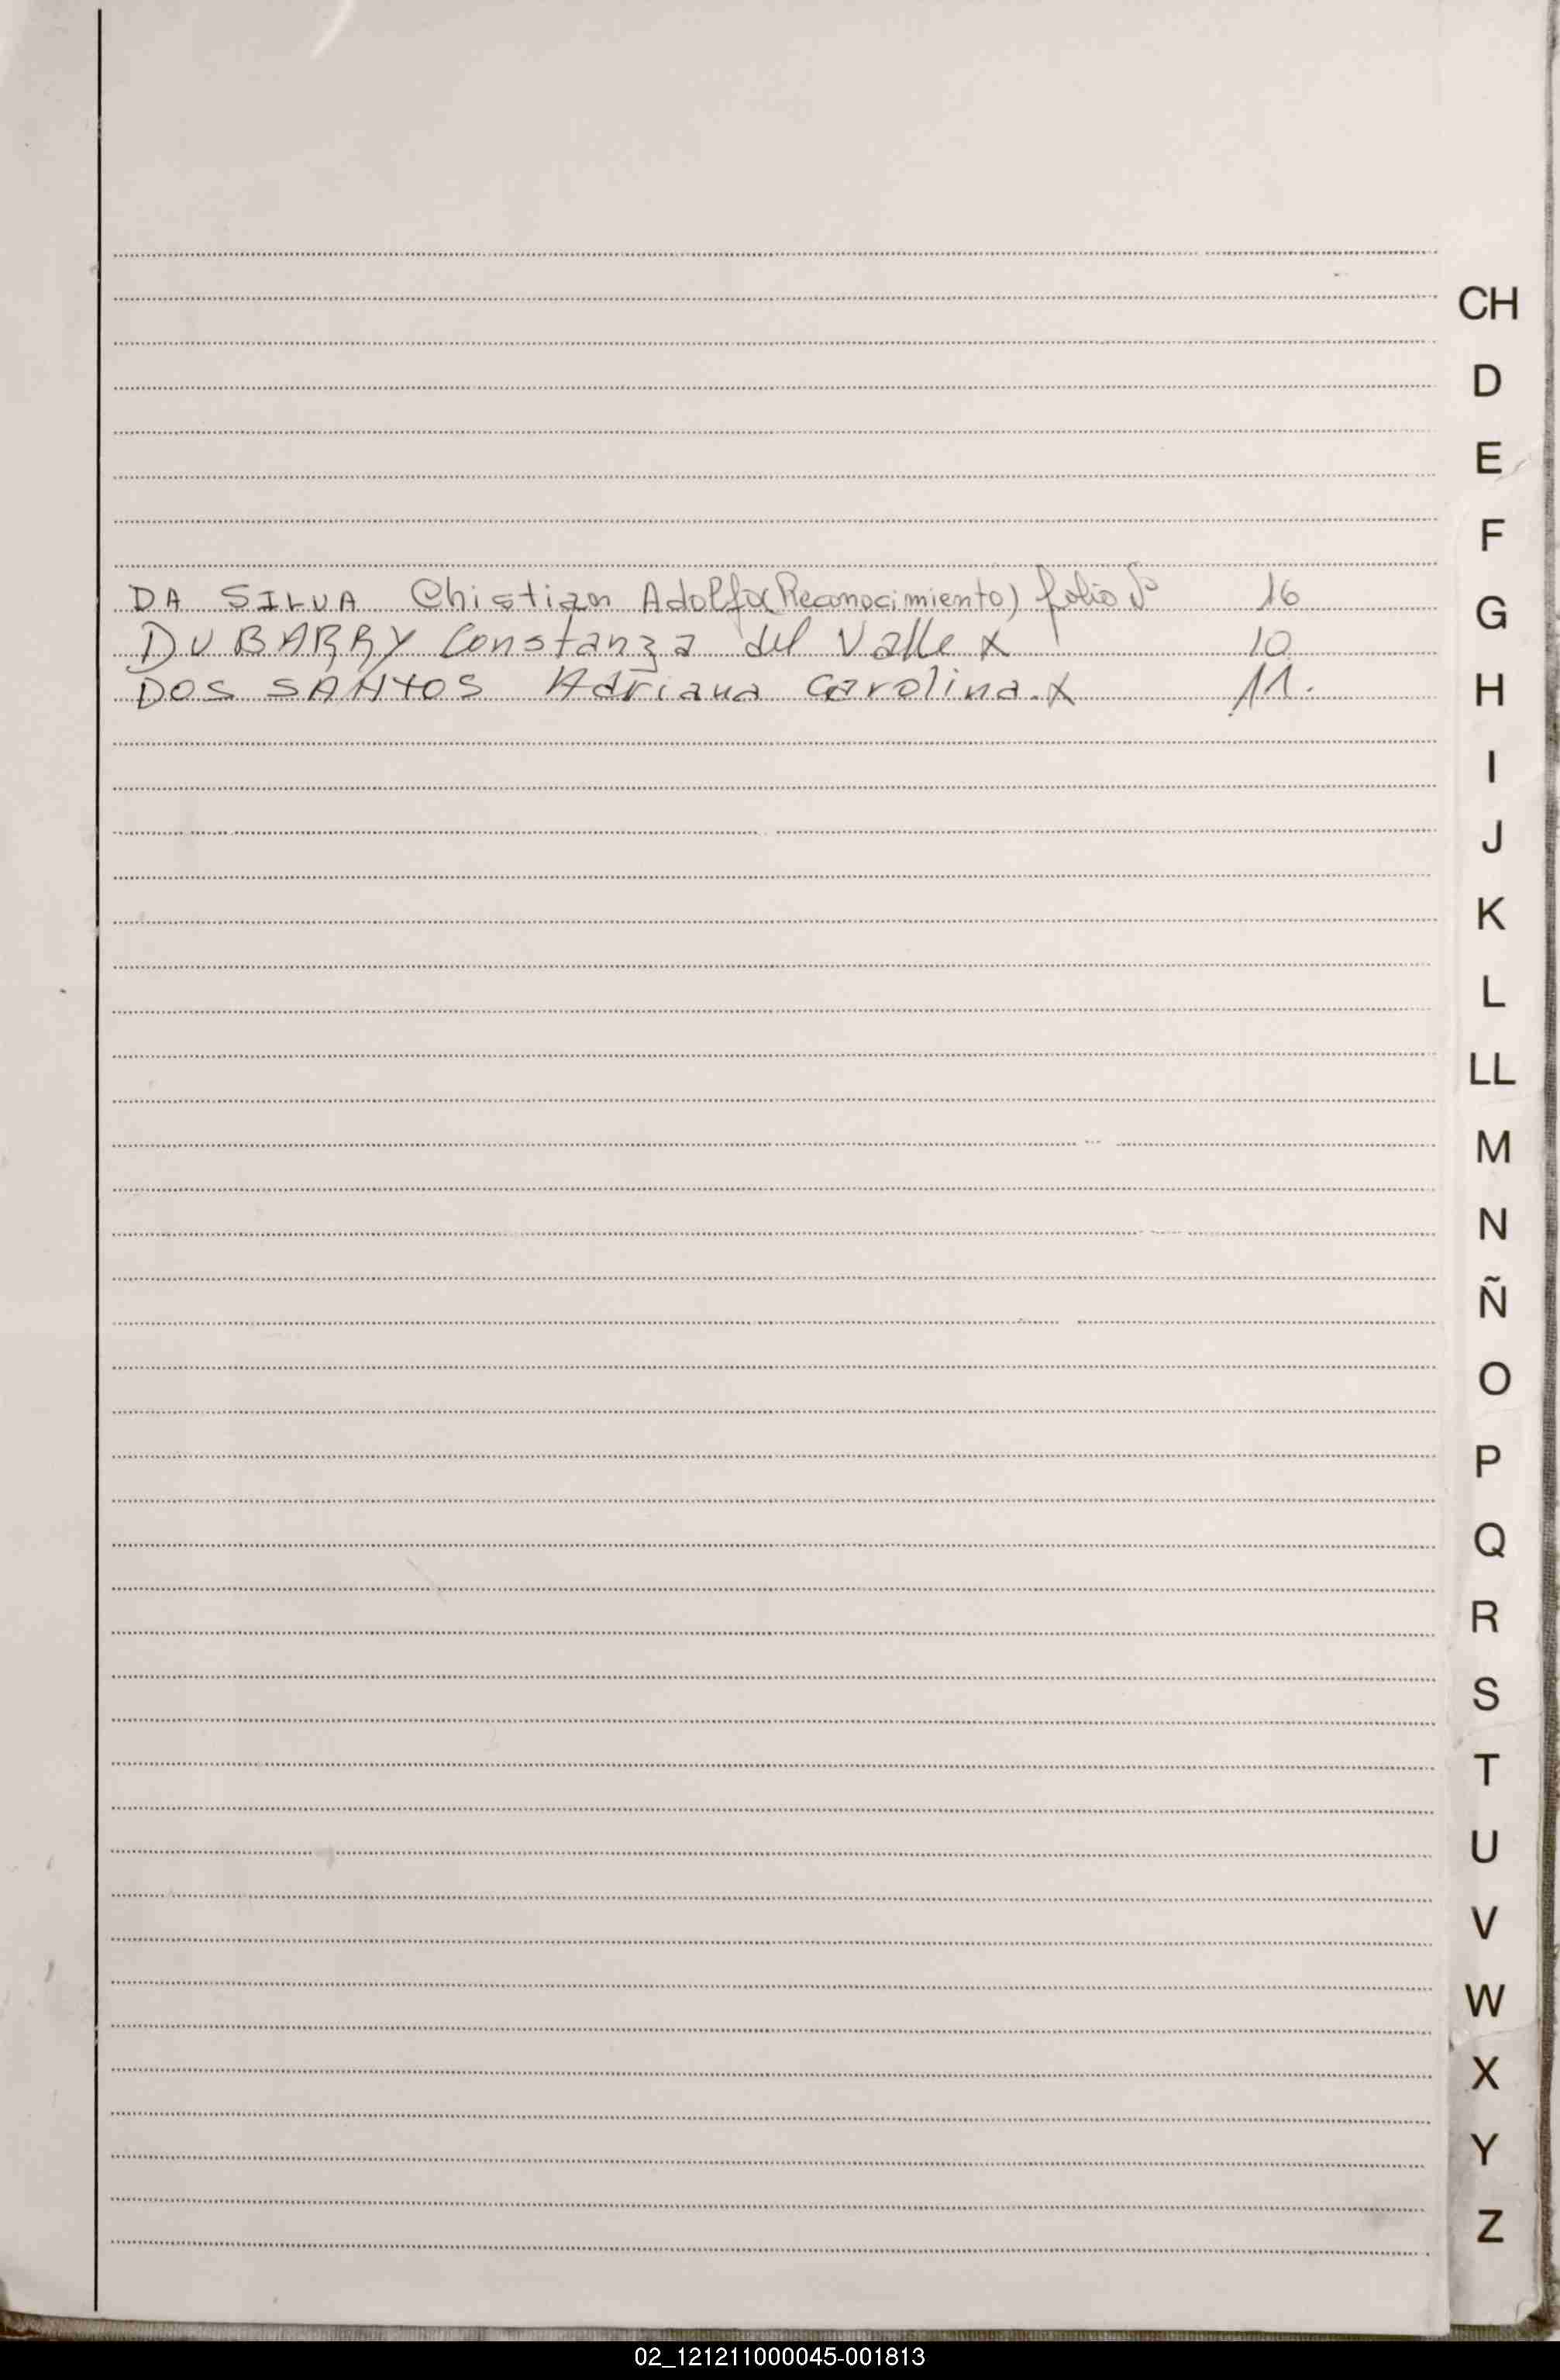 CH
D
E
F
DA SILVA Chistian Adolfo (Reconocimiento) folio Nº 16
G
DUBARRY Constanza del Valle X 10
DOS SANTOS Adriana Carolina. X 11.
H
I
J
K
L
LL
M
N
Ñ
O
P
Q
R
S
T
U
V
W
X
Y
Z
02_121211000045-001813